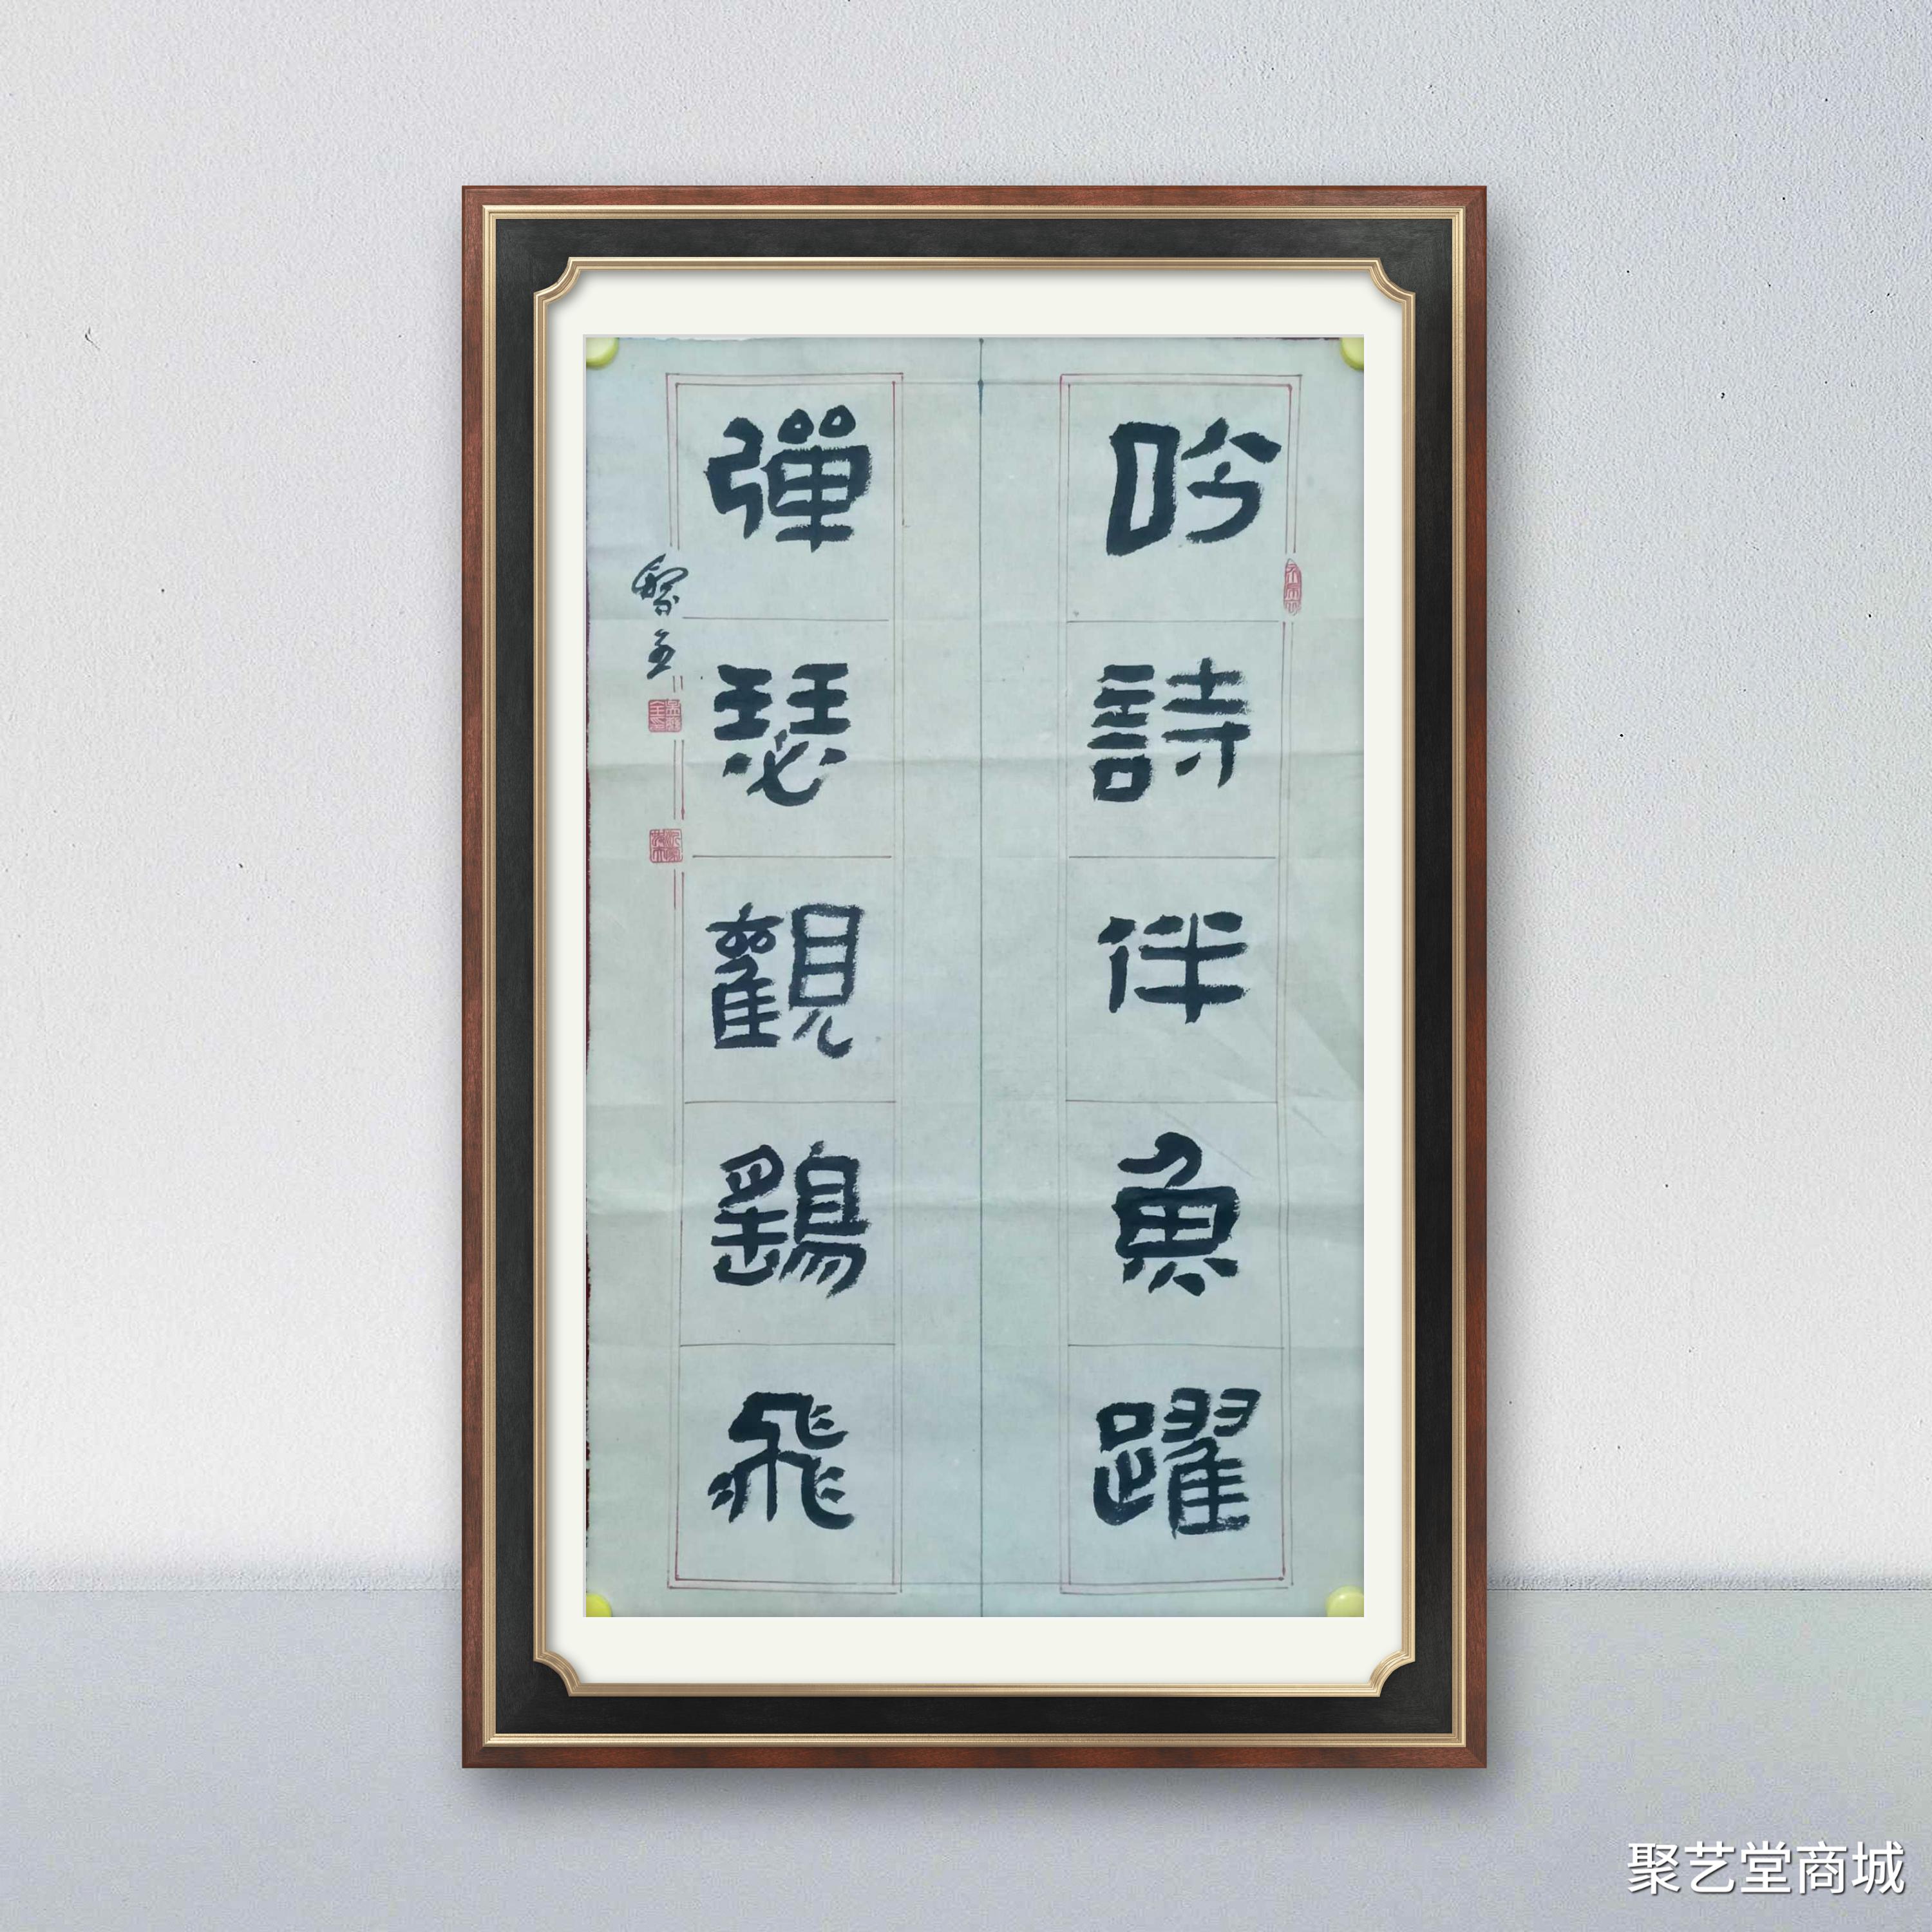 吟詩伴魚躍
彈瑟觀鷂飛
聚艺堂商城